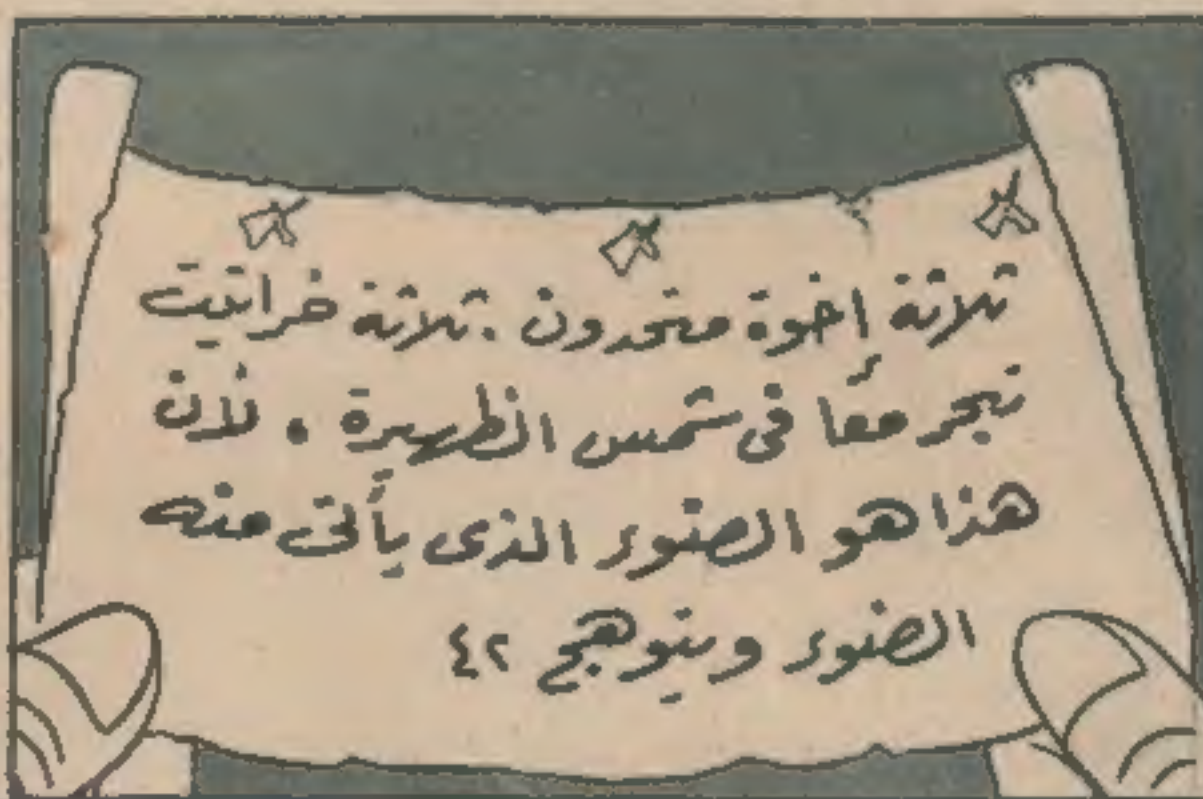 ثلاثة إخوة متحدون . ثلاثة خراتيت
تبحر معًا فى شمس الظهيرة . لأن
هذا هو الضوء الذى يأتى منه
الضوء ويتوهج ٤٢